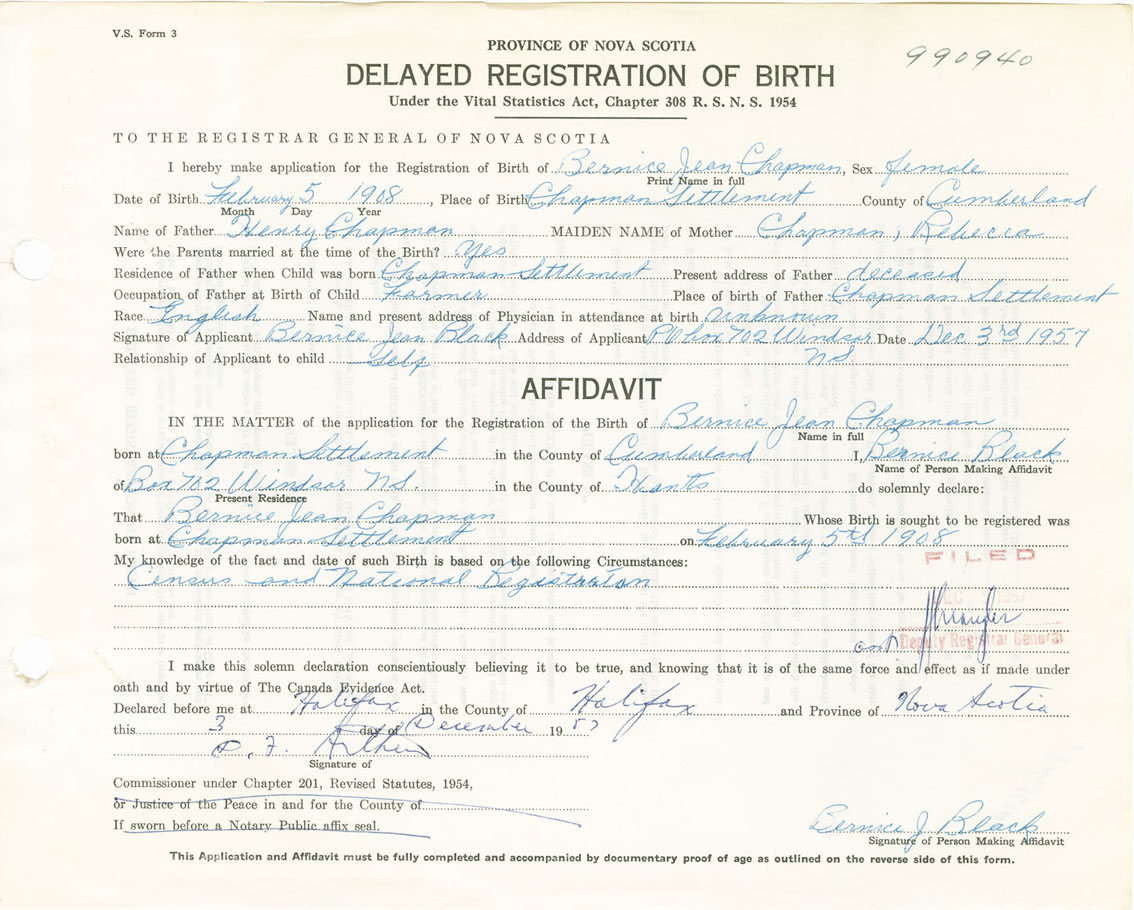 V.S. Form 3
PROVINCE OF NOVA SCOTIA
990940
DELAYED REGISTRATION OF BIRTH
Under the Vital Statistics Act, Chapter 308 R. S. N. S. 1954
TO THE REGISTRAR GENERAL OF NOVA SCOTIA
I hereby make application for the Registration of Birth of Bernice Jean Chapman, Sex female
Print Name in full
Date of Birth February 5 1908, Place of Birth Chapman Settlement County of Cumberland
Month Day Year
Name of Father Henry Chapman MAIDEN NAME of Mother Chapman, Rebecca
Were the Parents married at the time of the Birth? Yes
Residence of Father when Child was born Chapman Settlement Present address of Father deceased
Occupation of Father at Birth of Child Farmer Place of birth of Father Chapman Settlement
Race English Name and present address of Physician in attendance at birth unknown
Signature of Applicant Bernice Jean Black Address of Applicant P O box 702 Windsor Date Dec 3rd 1957
Relationship of Applicant to child Self NS
AFFIDAVIT
IN THE MATTER of the application for the Registration of the Birth of Bernice Jean Chapman
Name in full
born at Chapman Settlement in the County of Cumberland I, Bernice Black
Name of Person Making Affidavit
of Box 702 Windsor NS. in the County of Hants do solemnly declare:
Present Residence
That Bernice Jean Chapman Whose Birth is sought to be registered was
born at Chapman Settlement on February 5th 1908
My knowledge of the fact and date of such Birth is based on the following Circumstances:
Census and National Registration
FILED
DEC 1957
Deputy Registrar General
I make this solemn declaration conscientiously believing it to be true, and knowing that it is of the same force and effect as if made under
oath and by virtue of The Canada Evidence Act.
Declared before me at Halifax in the County of Halifax and Province of Nova Scotia
this 3 day of December 19 57
Signature of
Commissioner under Chapter 201, Revised Statutes, 1954,
or Justice of the Peace in and for the County of
If sworn before a Notary Public affix seal.
Bernice J Black
Signature of Person Making Affidavit
This Application and Affidavit must be fully completed and accompanied by documentary proof of age as outlined on the reverse side of this form.